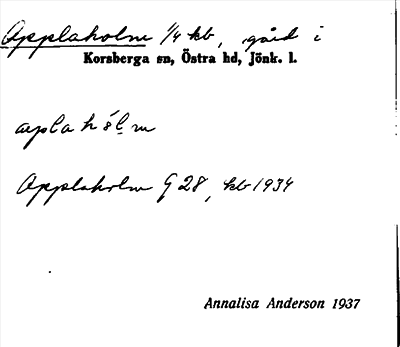 Applaholm 1/4 kb, gård i
Korsberga sn, Östra hd, Jönk. l.
aplahólm
Applaholm G28, kb 1934
Annalisa Anderson 1937